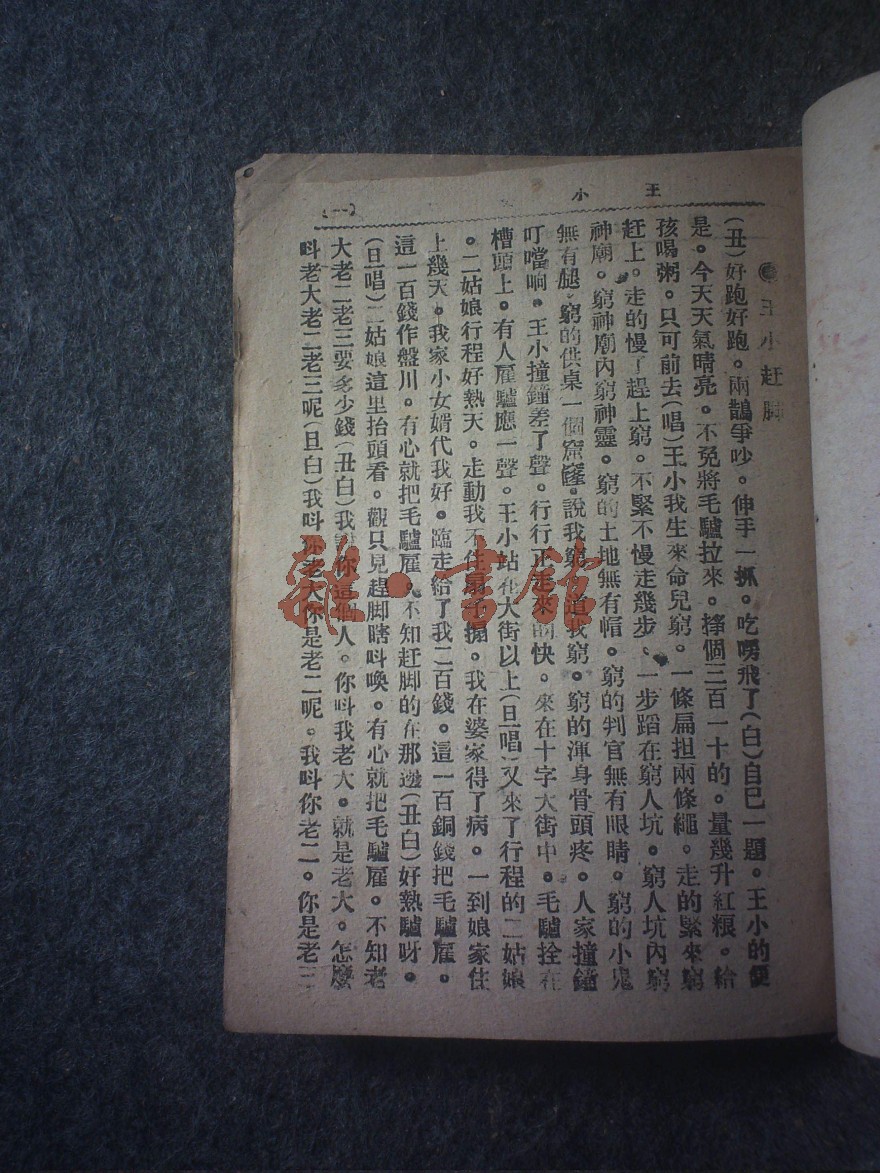 王小
(一)
王小赶脚
(丑)好跑好跑。兩鵲爭吵。伸手一抓。吃喨飛了(白)自己一題。王小的便
是。今天天氣晴亮。不免將毛驢拉來。掙個三百一十的。量幾升紅粮。給
孩喝粥。只可前去(唱)王小我生來命兒窮。一條扁担兩條繩。走的緊來窮
赶上。走的慢了趕上窮。不緊不慢走幾步。一步蹈在窮人坑。窮人坑內窮
神廟。窮神廟內窮神靈。窮的土地無有帽。窮的判官無有眼睛。窮的小鬼
無有腿。窮的供桌一個窟窿。說我窮。道我窮。窮的渾身骨頭疼。人家撞鐘
叮噹响。王小撞鐘差了聲。行行正走來的快。來在十字大街中。毛驢拴在
槽頭上。有人雇驢應一聲。王小站在大街以上(旦唱)又來了行程的二姑娘
。二姑娘行程好熱天。走動我不住扇子搧。我在婆家得了病。一到娘家住
上幾天。我家小女婿代我好。臨走給了我二百錢。這一百銅錢把毛驢雇。
這一百錢作盤川。有心就把毛驢雇。不知赶脚的在那邊(丑白)好熱驢呀。
(旦唱)二姑娘這里抬頭看。觀只見趕脚瞎呌喚。有心就把毛驢雇。不知老
大老二老三要多少錢(丑白)我說你這個人。你呌我老大。就是老大。怎麼
呌老大老二老三呢(旦白)我呌你老大你是老二呢。我呌你老二。你是老三
雜·書館